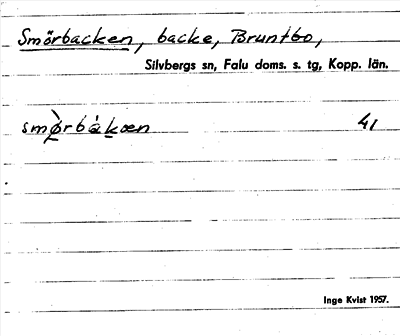 Smörbacken, backe, Bruntbo,
Silvbergs sn, Falu doms. s. tg, Kopp. län.
smø̀rbákæn 41
Inge Kvist 1957.